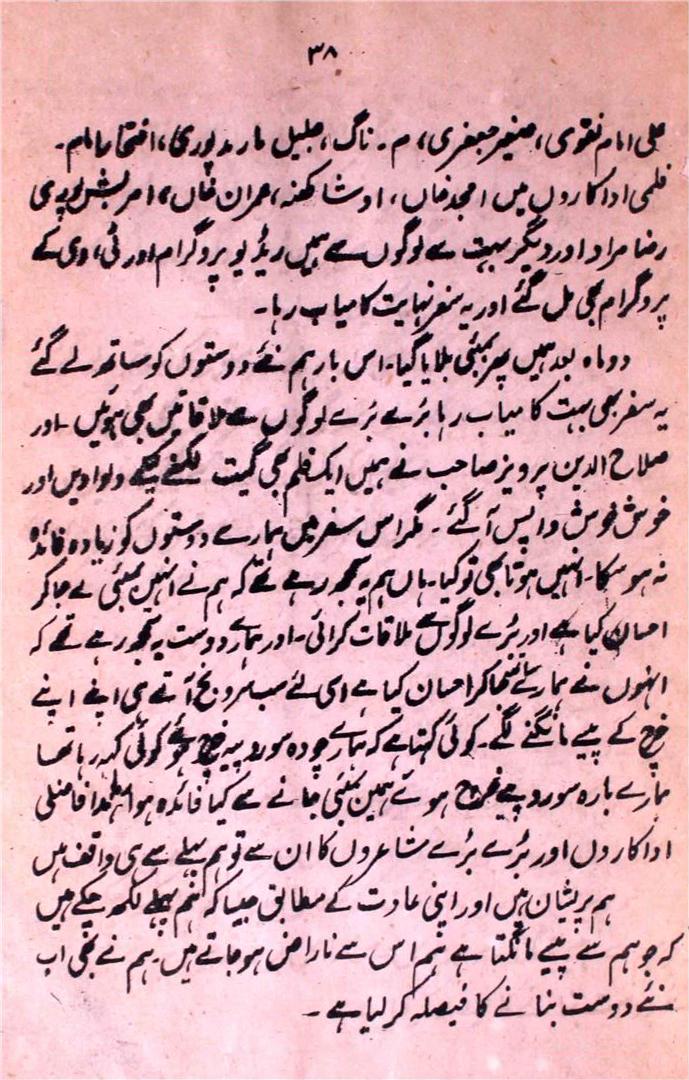 ۳۸
علی امام نقوی، صغیر جعفری، م۔ ناگ، جلیل مارہروی، افتخار امام۔
فلمی اداکاروں میں امجد خاں، اوشا کھنہ، عمران خاں، امریش پوری
رضا مراد اور دیگر بہت سے لوگوں سے ملیں ریڈیو پروگرام اور ٹی، وی کے
پروگرام بھی مل گئے اور یہ سفر نہایت کامیاب رہا۔
دو ماہ بعد ہمیں پھر بمبئی بلایا گیا۔ اس بار ہم نئے دوستوں کو ساتھ لے گئے
یہ سفر بھی بہت کامیاب رہا بڑے بڑے لوگوں سے ملاقاتیں بھی ہوئیں۔ اور
صلاح الدین پرویز صاحب نے ہمیں ایک فلم بھی گیت لکھنے کیلئے دلوادیں اور
خوش خوش واپس آگئے۔ مگر اس سفر میں ہمارے دوستوں کو زیادہ فائدہ
نہ ہوسکا۔ انہیں ہوتا بھی تو کیا۔ ہاں ہم یہ سمجھ رہے تھے کہ ہم نے انہیں بمبئی لے جاکر
احسان کیا ہے اور بڑے لوگوں سے ملاقات کرائی۔ اور ہمارے دوست یہ سمجھ رہے تھے کہ
انہوں نے ہمارے ساتھ جاکر احسان کیا ہے اسی لئے سب سرونج آتے ہی اپنے اپنے
خرچ کے پیسے مانگنے لگے۔ کوئی کہتا ہے کہ ہمارے چودہ سو روپیہ خرچ ہوئے کوئی کہہ رہا تھا
ہمارے بارہ سو روپیے خرچ ہوئے ہمیں بمبئی جانے سے کیا فائدہ ہوا لہٰذا فلمی
اداکاروں اور بڑے بڑے شاعروں کا ان سے تو ہم پہلے سے ہی واقف ہیں
ہم پریشان ہیں اور اپنی عادت کے مطابق جیسا کہ ہم پہلے لکھ چکے ہیں
کہ جو ہم سے پیسے مانگتا ہے ہم اس سے ناراض ہوجاتے ہیں۔ ہم نے بھی اب
نئے دوست بنانے کا فیصلہ کرلیا ہے۔